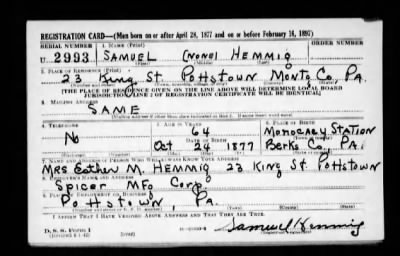 REGISTRATION CARD—(Men born on or after April 28, 1877 and on or before February 16, 1897)
SERIAL NUMBER 1. NAME (Print)
U 2993 SAMUEL (NONE) HEMMIG
(First) (Middle) (Last)
2. PLACE OF RESIDENCE (Print)
23 King St. POTTSTOWN MONTG CO. PA.
[THE PLACE OF RESIDENCE GIVEN ON THE LINE ABOVE WILL DETERMINE LOCAL BOARD
JURISDICTION; LINE 2 OF REGISTRATION CERTIFICATE WILL BE IDENTICAL]
3. MAILING ADDRESS
SAME
4. TELEPHONE 5. AGE IN YEARS 6. PLACE OF BIRTH
No 64 MONOCACY STATION
Oct 24 1877 Berks Co. PA.
7. NAME AND ADDRESS OF PERSON WHO WILL ALWAYS KNOW YOUR ADDRESS
MRS Esther M. HEMMIG 23 KING ST. POTTSTOWN
8. EMPLOYER'S NAME AND ADDRESS
Spicer MFG Corp.
9. PLACE OF EMPLOYMENT OR BUSINESS
POTTSTOWN, PA.
I AFFIRM THAT I HAVE VERIFIED ABOVE ANSWERS AND THAT THEY ARE TRUE.
D. S. S. FORM 1
Samuel Hemmig